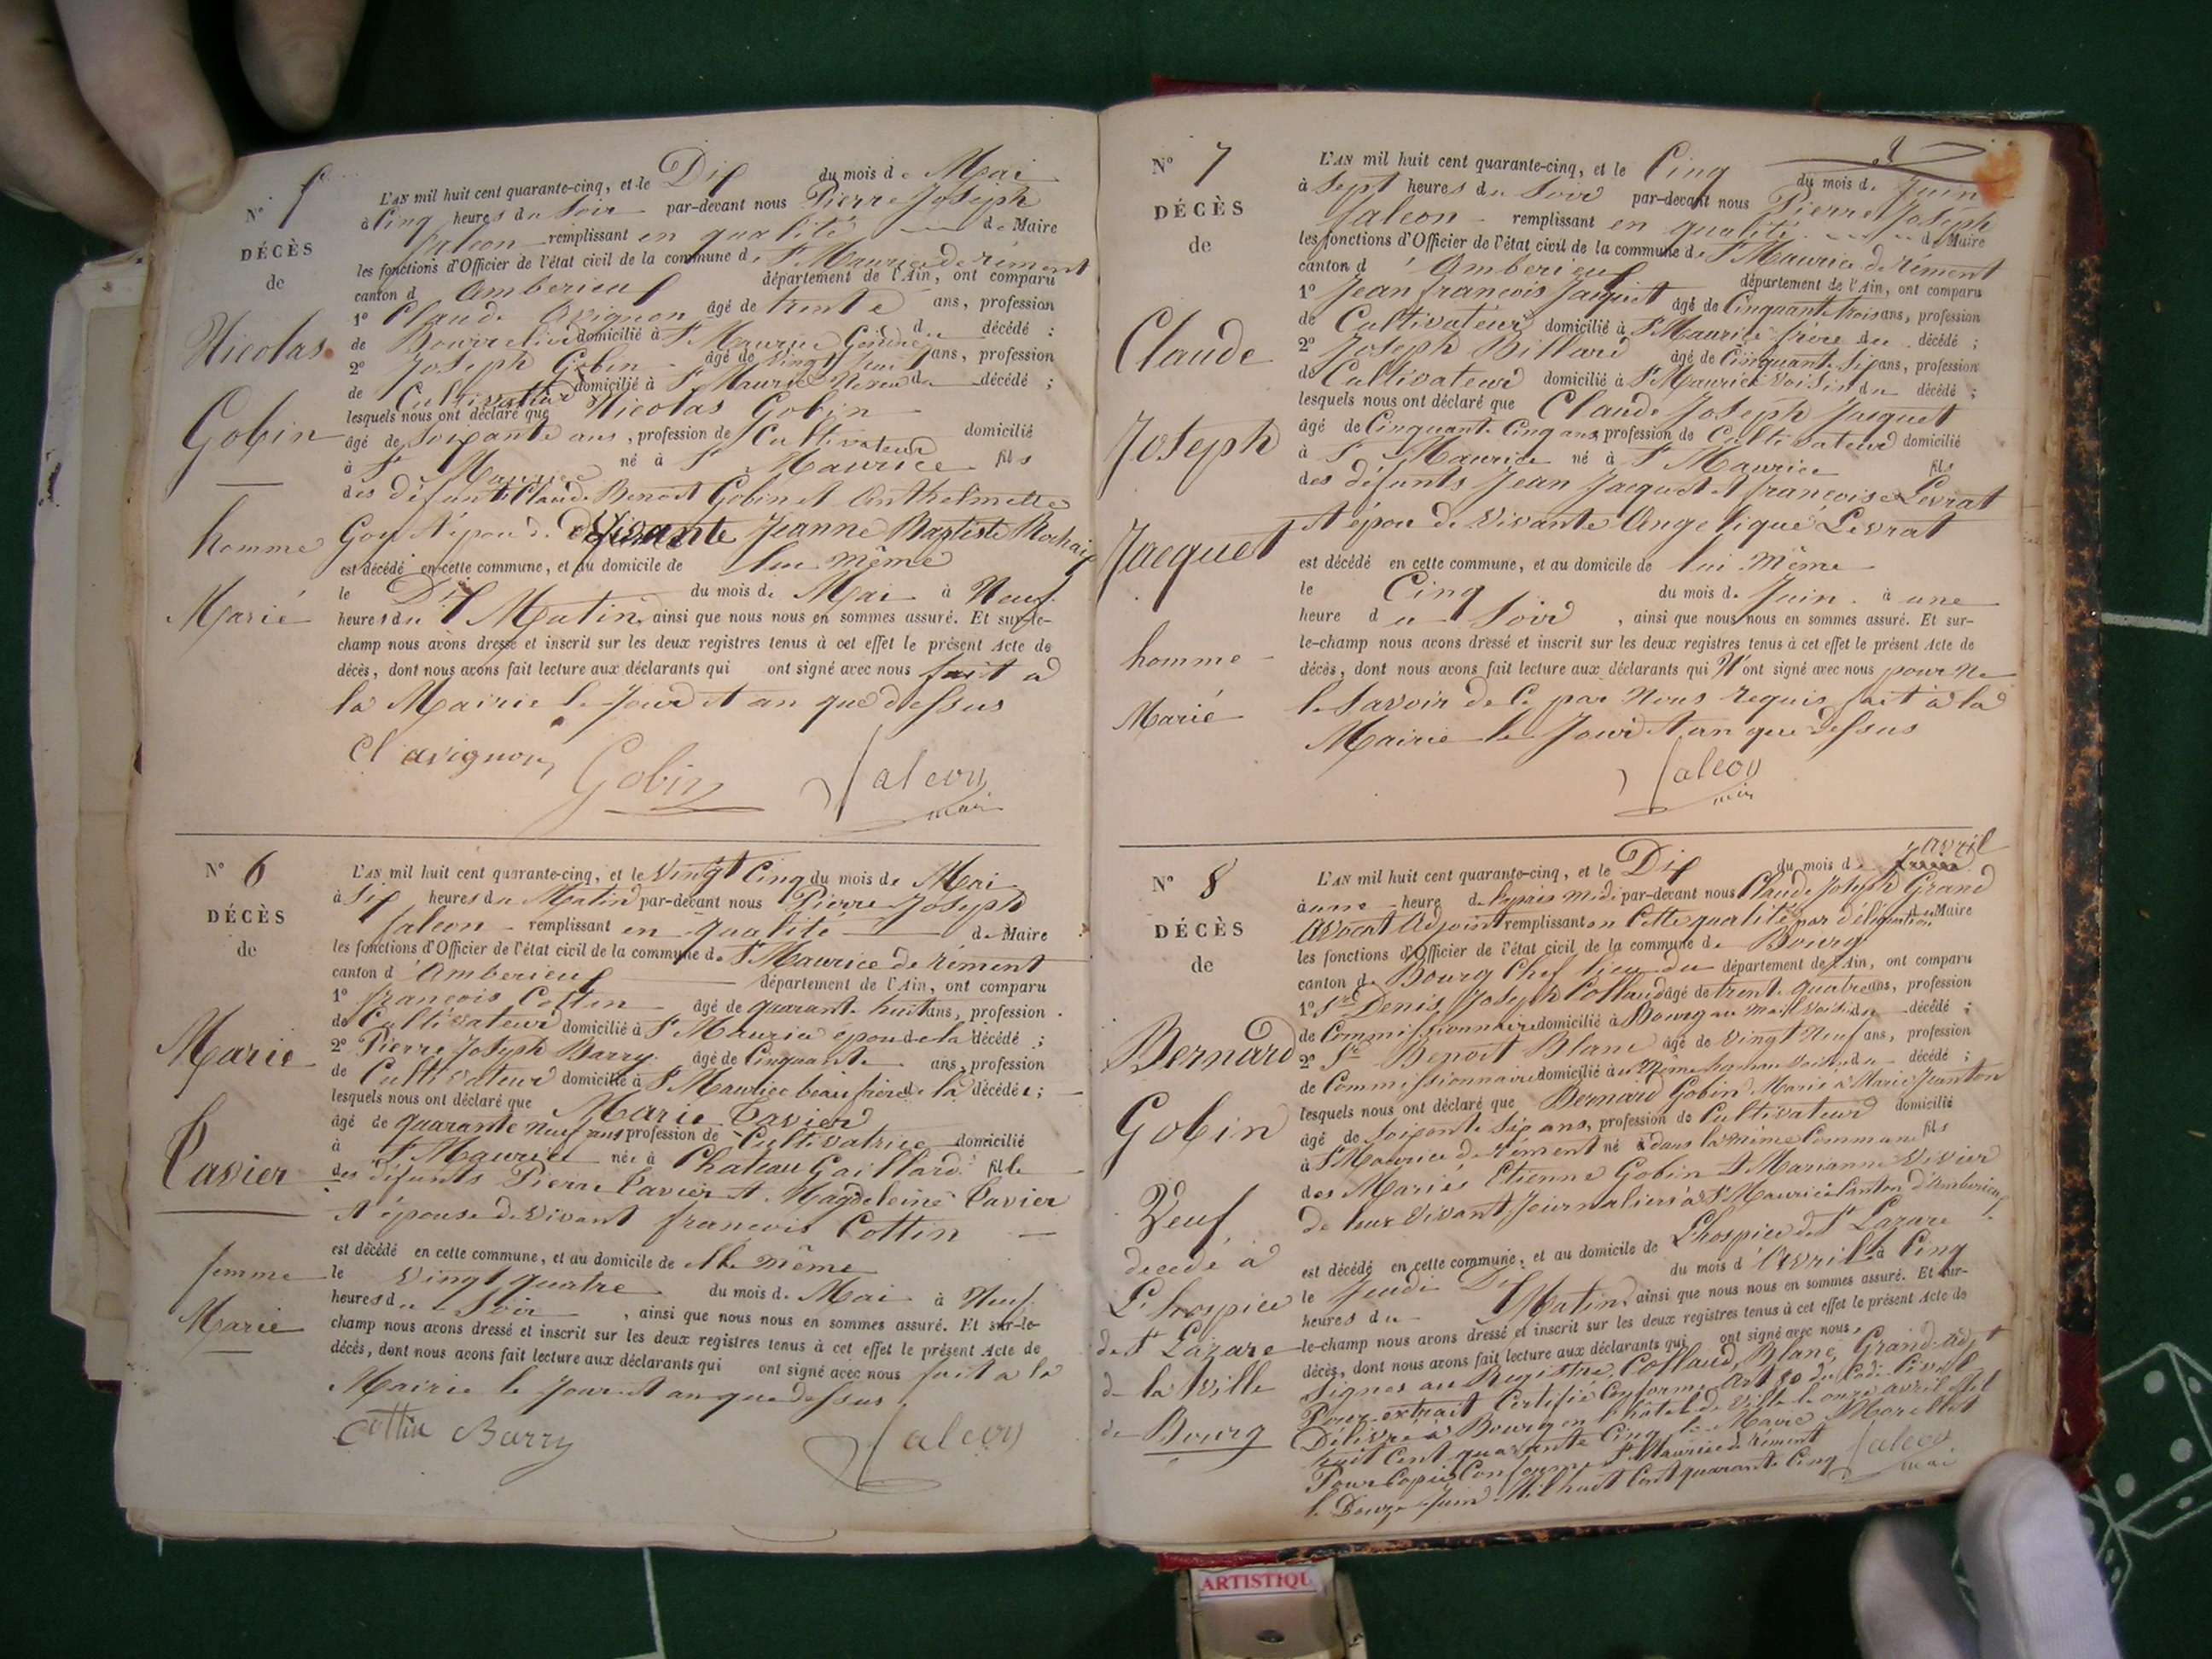 N° 5
DÉCÈS
de
Nicolas
Gobin
homme
Marié
L'AN mil huit cent quarante-cinq, et le Dix du mois de Mai
à Cinq heures du Soir par-devant nous Pierre Joseph
falcon remplissant en qualité de Maire
les fonctions d'Officier de l'état civil de la commune de St Maurice de rément
canton d'Amberieux département de l'Ain, ont comparu
1° Claude Avignon âgé de trente ans, profession
de Bourrelier domicilié à St Maurice Gendre du décédé ;
2° Joseph Gobin âgé de vingt huit ans, profession
de Cultivateur domicilié à St Maurice Neveu du décédé ;
lesquels nous ont déclaré que Nicolas Gobin
âgé de soixante ans, profession de Cultivateur domicilié
à St Maurice né à St Maurice fils
des défunts Claude Benoit Gobin et Anthelmette
Goy et époux de vivante Jeanne Baptiste Rochaix
est décédé en cette commune, et au domicile de lui même
le Dix du mois de Mai à Neuf
heures du Matin, ainsi que nous nous en sommes assuré. Et sur-le-
champ nous avons dressé et inscrit sur les deux registres tenus à cet effet le présent Acte de
décès, dont nous avons fait lecture aux déclarants qui ont signé avec nous fait à
la Mairie le Jour et an que dessus
Cl avignon Gobin falcon
maire
N° 6
DÉCÈS
de
Marie
Tavier
femme
Marié
L'AN mil huit cent quarante-cinq, et le Vingt Cinq du mois de Mai
à Six heures du Matin par-devant nous Pierre Joseph
falcon remplissant en qualité de Maire
les fonctions d'Officier de l'état civil de la commune de St Maurice de rément
canton d'Amberieux département de l'Ain, ont comparu
1° françois Cottin âgé de quarante huit ans, profession
de Cultivateur domicilié à St Maurice époux de la décédé ;
2° Pierre Joseph Barry âgé de Cinquante ans, profession
de Cultivateur domicilié à St Maurice beau frère de la décédée ;
lesquels nous ont déclaré que Marie Tavier
âgé de quarante neuf ans profession de Cultivatrice domicilié
à St Maurice née à Chateau Gaillard fille
des défunts Pierre Tavier et Magdeleine Tavier
et épouse de vivant françois Cottin
est décédé en cette commune, et au domicile de elle même
le vingt quatre du mois de Mai à Neuf
heures du Soir, ainsi que nous nous en sommes assuré. Et sur-le-
champ nous avons dressé et inscrit sur les deux registres tenus à cet effet le présent Acte de
décès, dont nous avons fait lecture aux déclarants qui ont signé avec nous fait à la
Mairie le Jour et an que dessus
Cottin Barry falcon
N° 7
DÉCÈS
de
Claude
Joseph
Jacquet
homme
Marié
L'AN mil huit cent quarante-cinq, et le Cinq du mois de Juin
à Sept heures du Soir par-devant nous Pierre Joseph
falcon remplissant en qualité de Maire
les fonctions d'Officier de l'état civil de la commune de St Maurice de rément
canton d'Amberieux département de l'Ain, ont comparu
1° Jean françois Jacquet âgé de Cinquante trois ans, profession
de Cultivateur domicilié à St Maurice frère du décédé ;
2° Joseph Billard âgé de Cinquante Six ans, profession
de Cultivateur domicilié à St Maurice voisin du décédé ;
lesquels nous ont déclaré que Claude Joseph Jacquet
âgé de Cinquante Cinq ans, profession de Cultivateur domicilié
à St Maurice né à St Maurice fils
des défunts Jean Jacquet et françoise Levrat
et époux de vivante Angelique Levrat
est décédé en cette commune, et au domicile de lui même
le Cinq du mois de Juin à une
heure du Soir, ainsi que nous nous en sommes assuré. Et sur-
le-champ nous avons dressé et inscrit sur les deux registres tenus à cet effet le présent Acte de
décès, dont nous avons fait lecture aux déclarants qui N'ont signé avec nous pour ne
le Savoir de ce par Nous requis fait à la
Mairie le Jour et an que dessus
falcon
maire
N° 8
DÉCÈS
de
Bernard
Gobin
Veuf
décédé à
L'hospice
de St Lazare
de la Ville
de Bourg
L'AN mil huit cent quarante-cinq, et le Dix du mois d avril
à une heure de l'après midi par-devant nous Claude Joseph Grand
Avocat Adjoint remplissant en Cette qualité par délégation du Maire
les fonctions d'Officier de l'état civil de la commune de Bourg
canton de Bourg Chef lieu du département de l'Ain, ont comparu
1° Sr Denis Joseph Collaud âgé de trente quatre ans, profession
de Commissionnaire domicilié à Bourg au mail voisin du décédé ;
2° Sr Benoit Blanc âgé de vingt Neuf ans, profession
de Commissionnaire domicilié au Même hameau voisin du décédé ;
lesquels nous ont déclaré que Bernard Gobin Marié à Marie Jeanton
âgé de soixante Six ans, profession de Cultivateur domicilié
à St Maurice de rément né dans la même Commune fils
des Mariés Etienne Gobin et Marianne Vivier
de leur vivant Journaliers à St Maurice Canton d'Amberieux
est décédé en cette commune, et au domicile de L'hospice de St Lazare
le Jeudi Dix du mois d'Avril à Cinq
heures du Matin, ainsi que nous nous en sommes assuré. Et sur-
le-champ nous avons dressé et inscrit sur les deux registres tenus à cet effet le présent Acte de
décès, dont nous avons fait lecture aux déclarants qui ont signé avec nous,
Signés au Registre, Collaud, Blanc, Grand adjt
Pour extrait Certifié Conforme Art 80 du Code Civil
Délivré à Bourg en l'hôtel de Ville le onze avril Mil
huit Cent quarante Cinq le Maire Morellet
Pour Copie Conforme St Maurice de rément
le Douze Juin Mil huit Cent quarante Cinq falcon
maire
ARTISTIQU